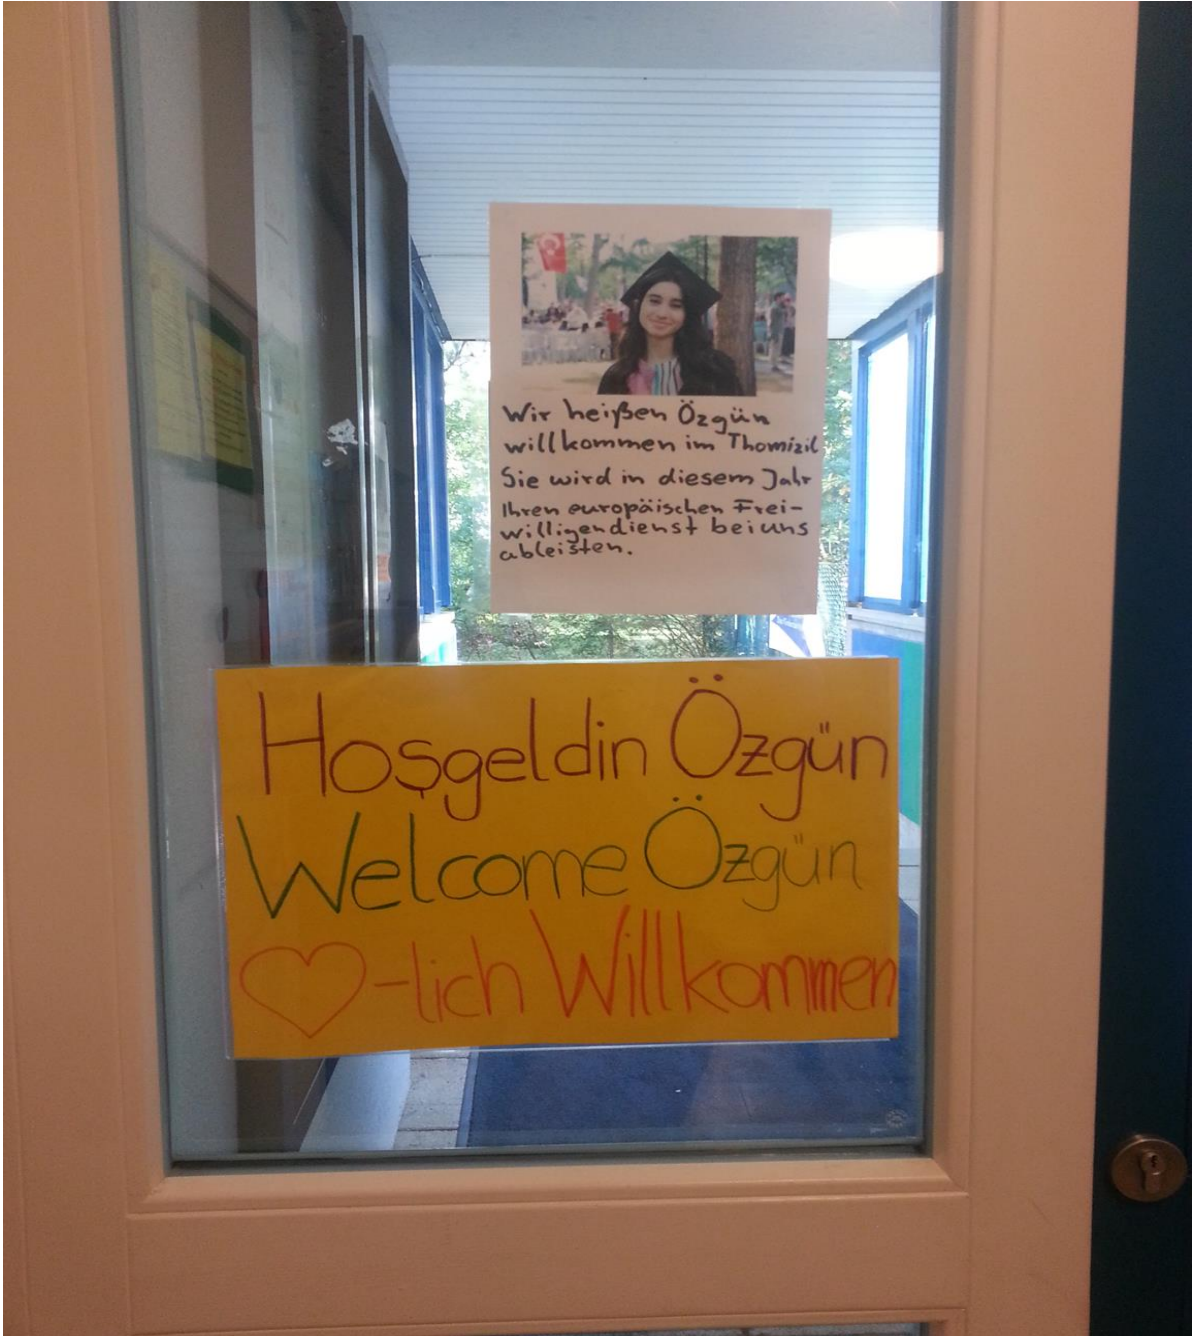 Wir heißen Özgün
willkommen im Thomizil
Sie wird in diesem Jahr
Ihren europäischen Frei-
willigendienst bei uns
ableisten.
Hoşgeldin Özgün
Welcome Özgün
-lich Willkommen